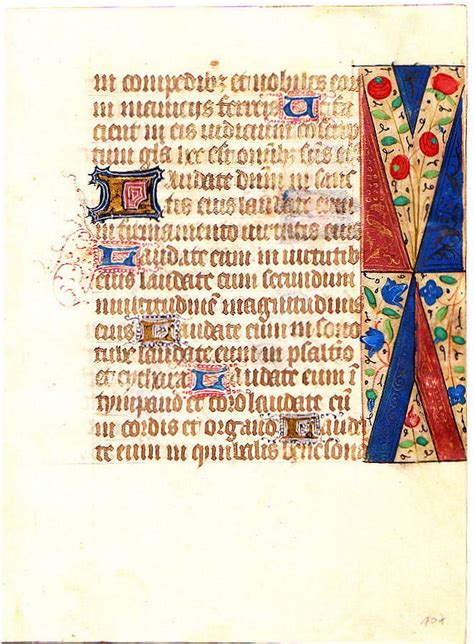 in compedibz et nobiles eor
in manicis ferreis Ut fa
ciant in eis iudicium conscrip
tum gła hec est omībz sctīs eius
Laudate dnm in sanc
tis eius laudate eum
in firmamento virtutis eius
Laudate eum in virtutib
eius laudate eum secundum
multitudinē magnitudinis
eius Laudate eum in sono
tube laudate eum in psaltio
et cythara Laudate eum ī
tympano et coro laudate eū
in cordis et organo Lauda
te eum in cimbalis benesona
108